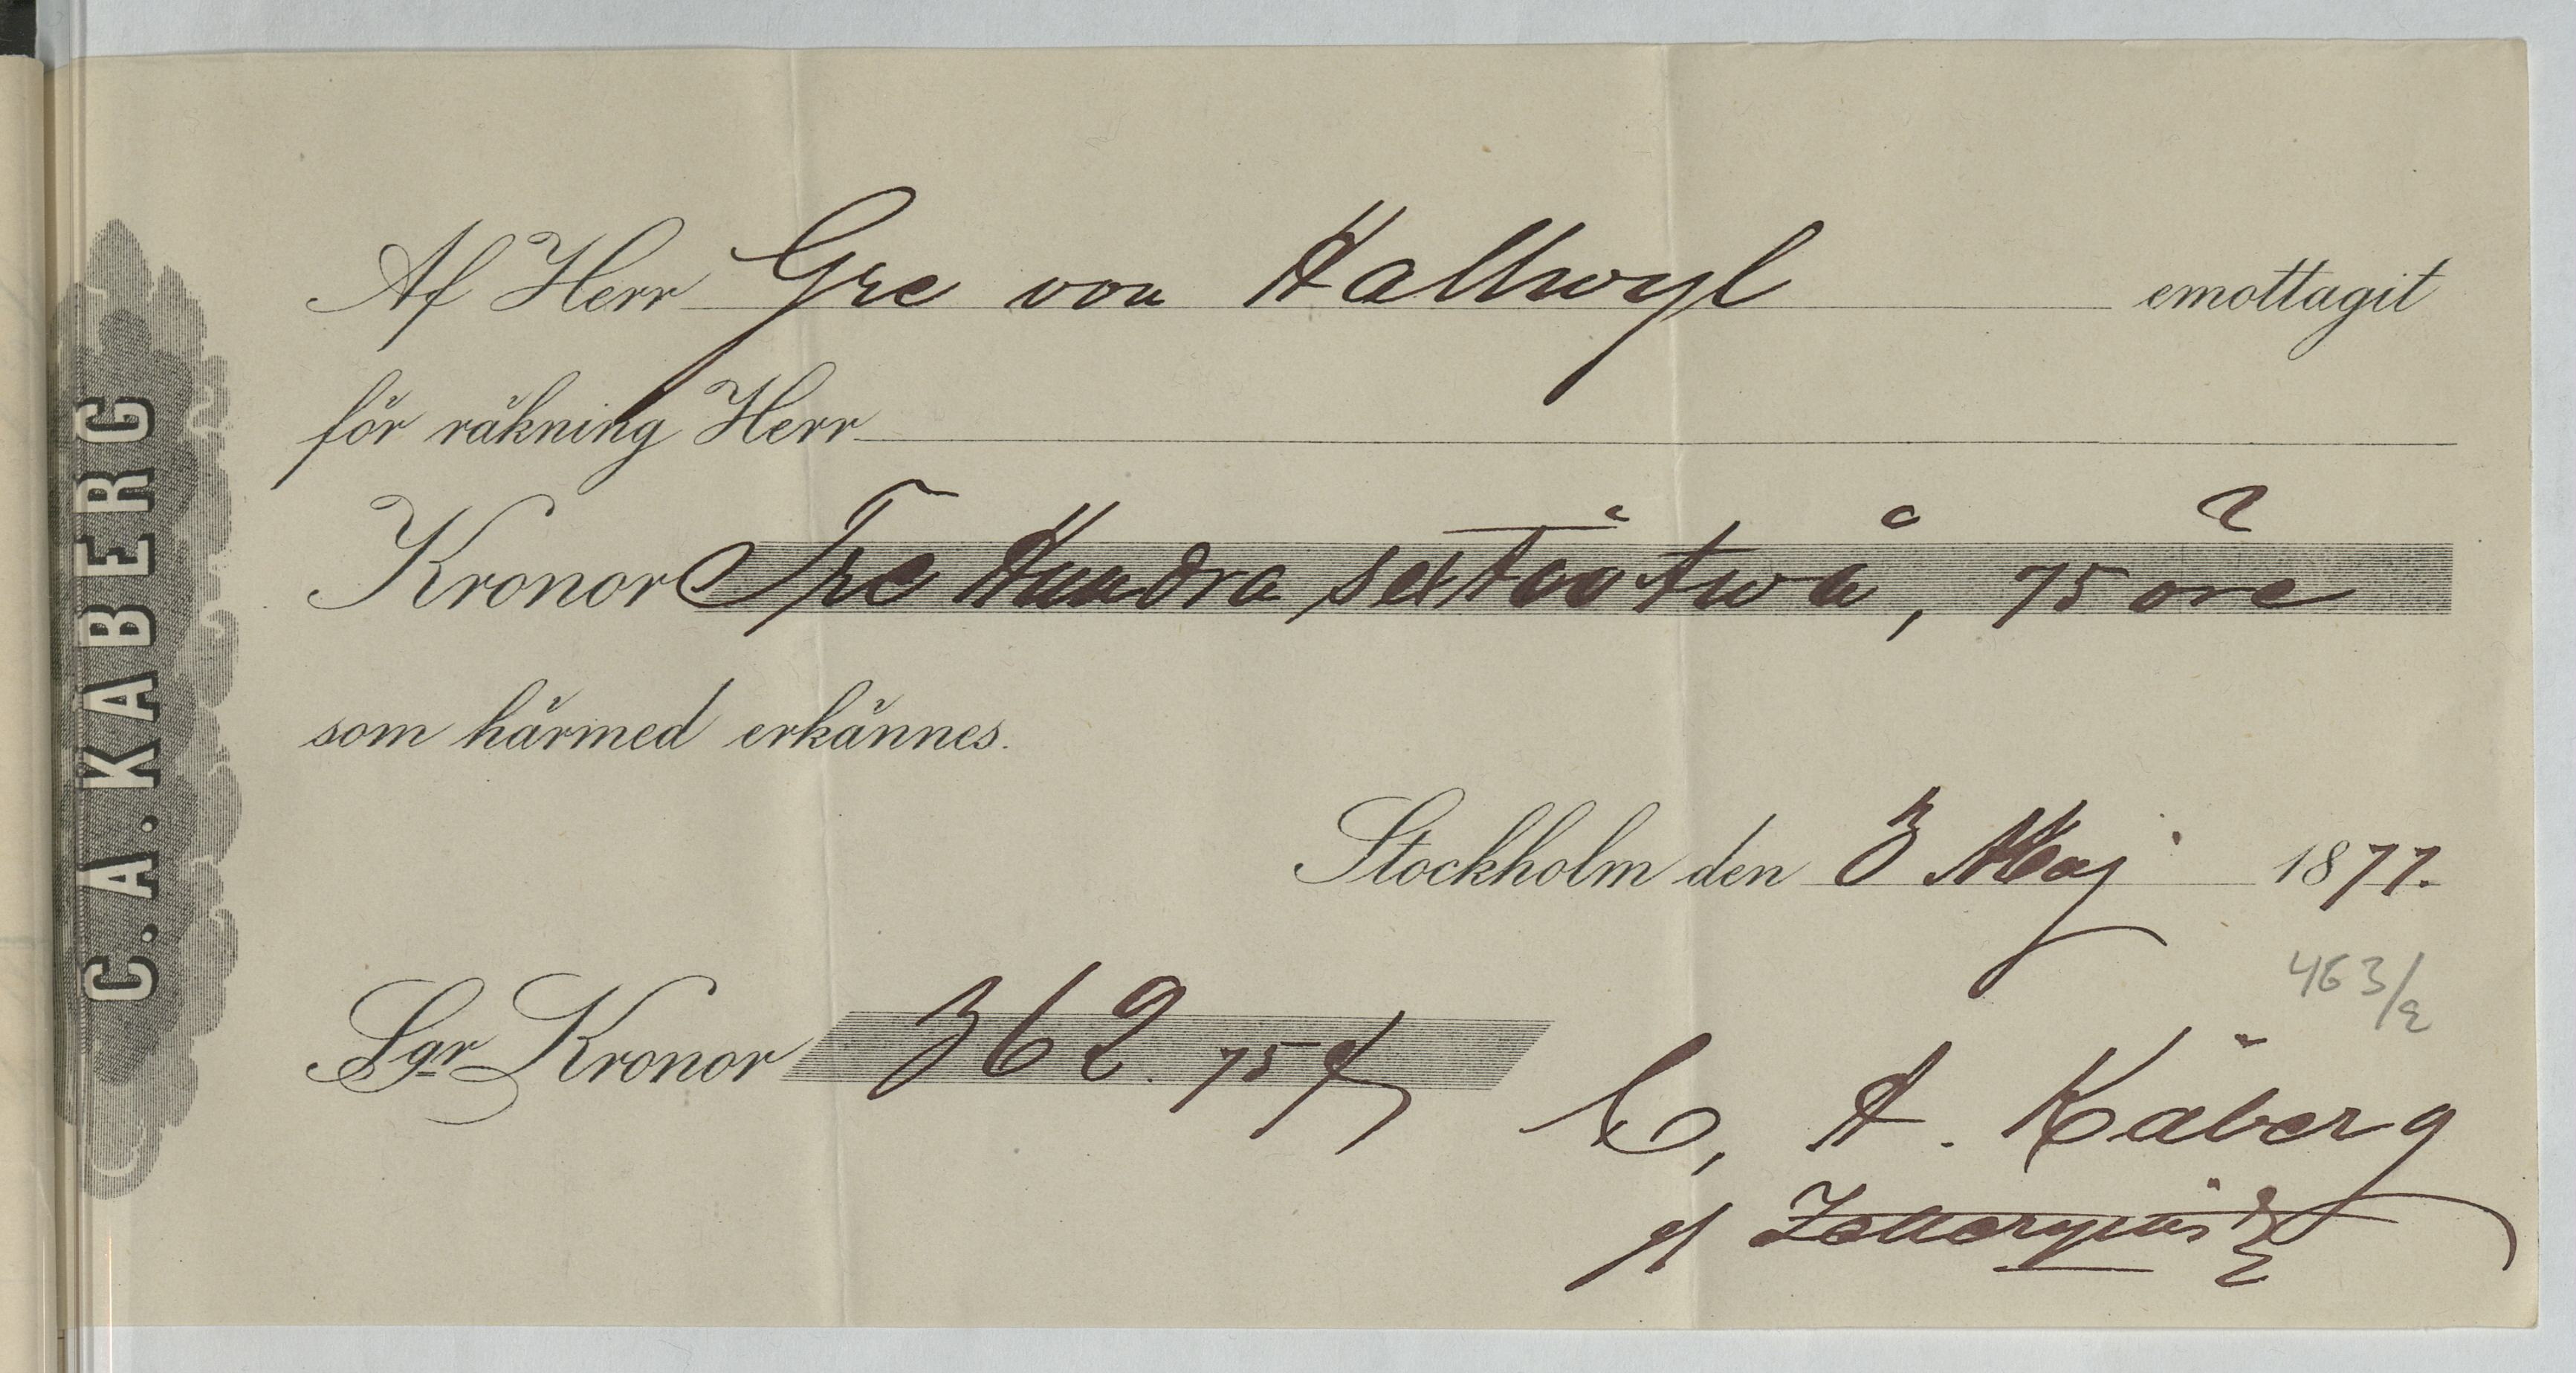 C. A. KABERG
Af Herr Gre von Hallwyl emottagit
för räkning Herr
Kronor Tre Hundra sextiotwå, 75 öre
som härmed erkännes.
Stockholm den 3 Maj 1877.
463/2
Sgr Kronor 362. 75
C. A. Kåberg